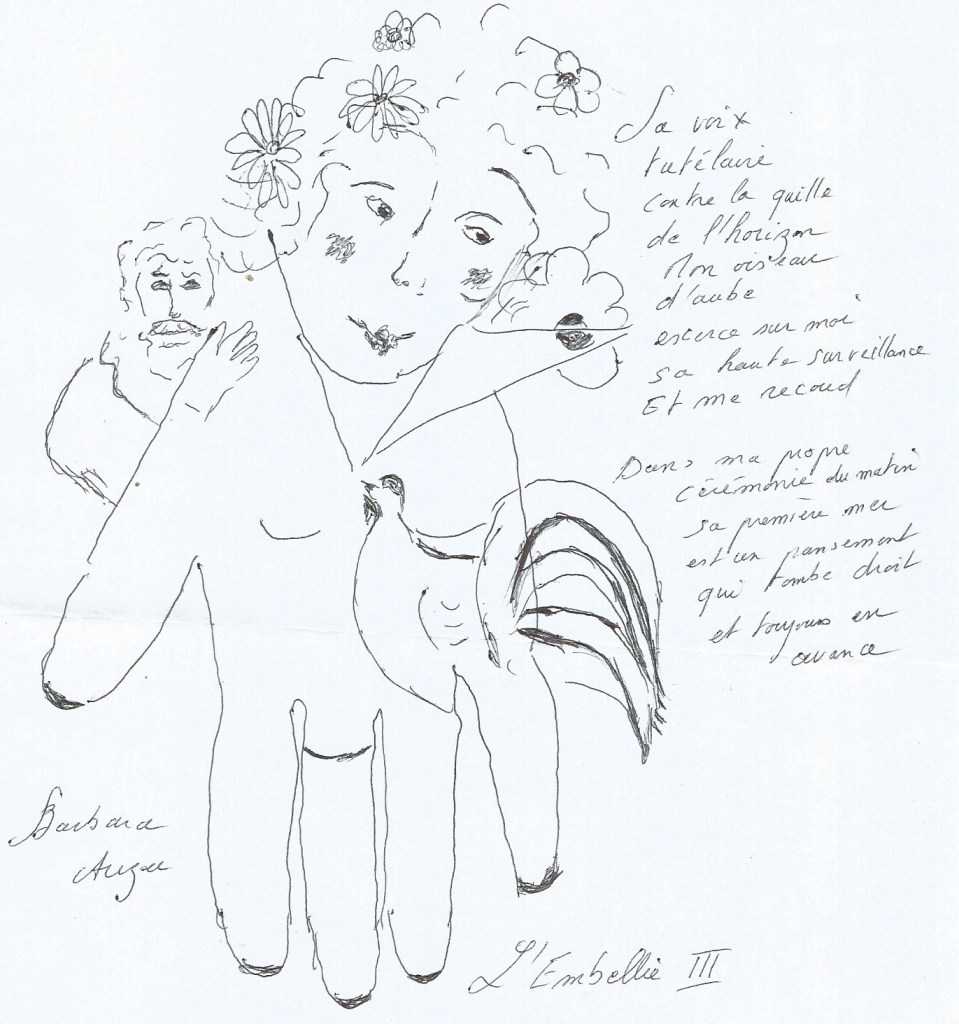 Sa voix
tutélaire
contre la quille
de l'horizon
Mon oiseau
d'aube
exerce sur moi
sa haute surveillance
Et me recoud
Dans ma propre
cérémonie du matin
sa première mer
est un pansement
qui tombe droit
et toujours en
avance
Barbara
Auzou
L'Embellie III